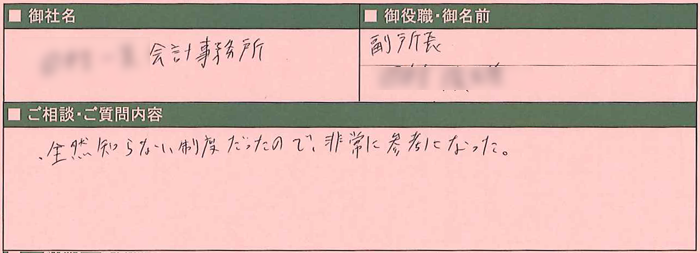 ■ 御社名
■ 御役職・御名前
会計事務所
副所長
■ ご相談・ご質問内容
全然知らない制度だったので、非常に参考になった。